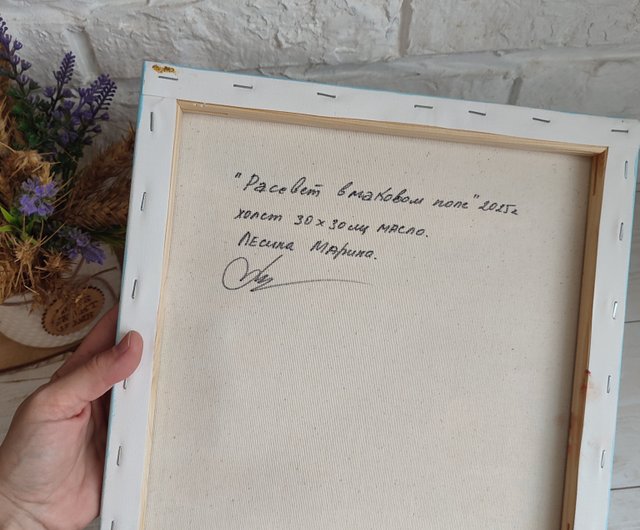 "Рассвет в маковом поле" 2025г
холст 30х30см масло.
Лесина Марина.